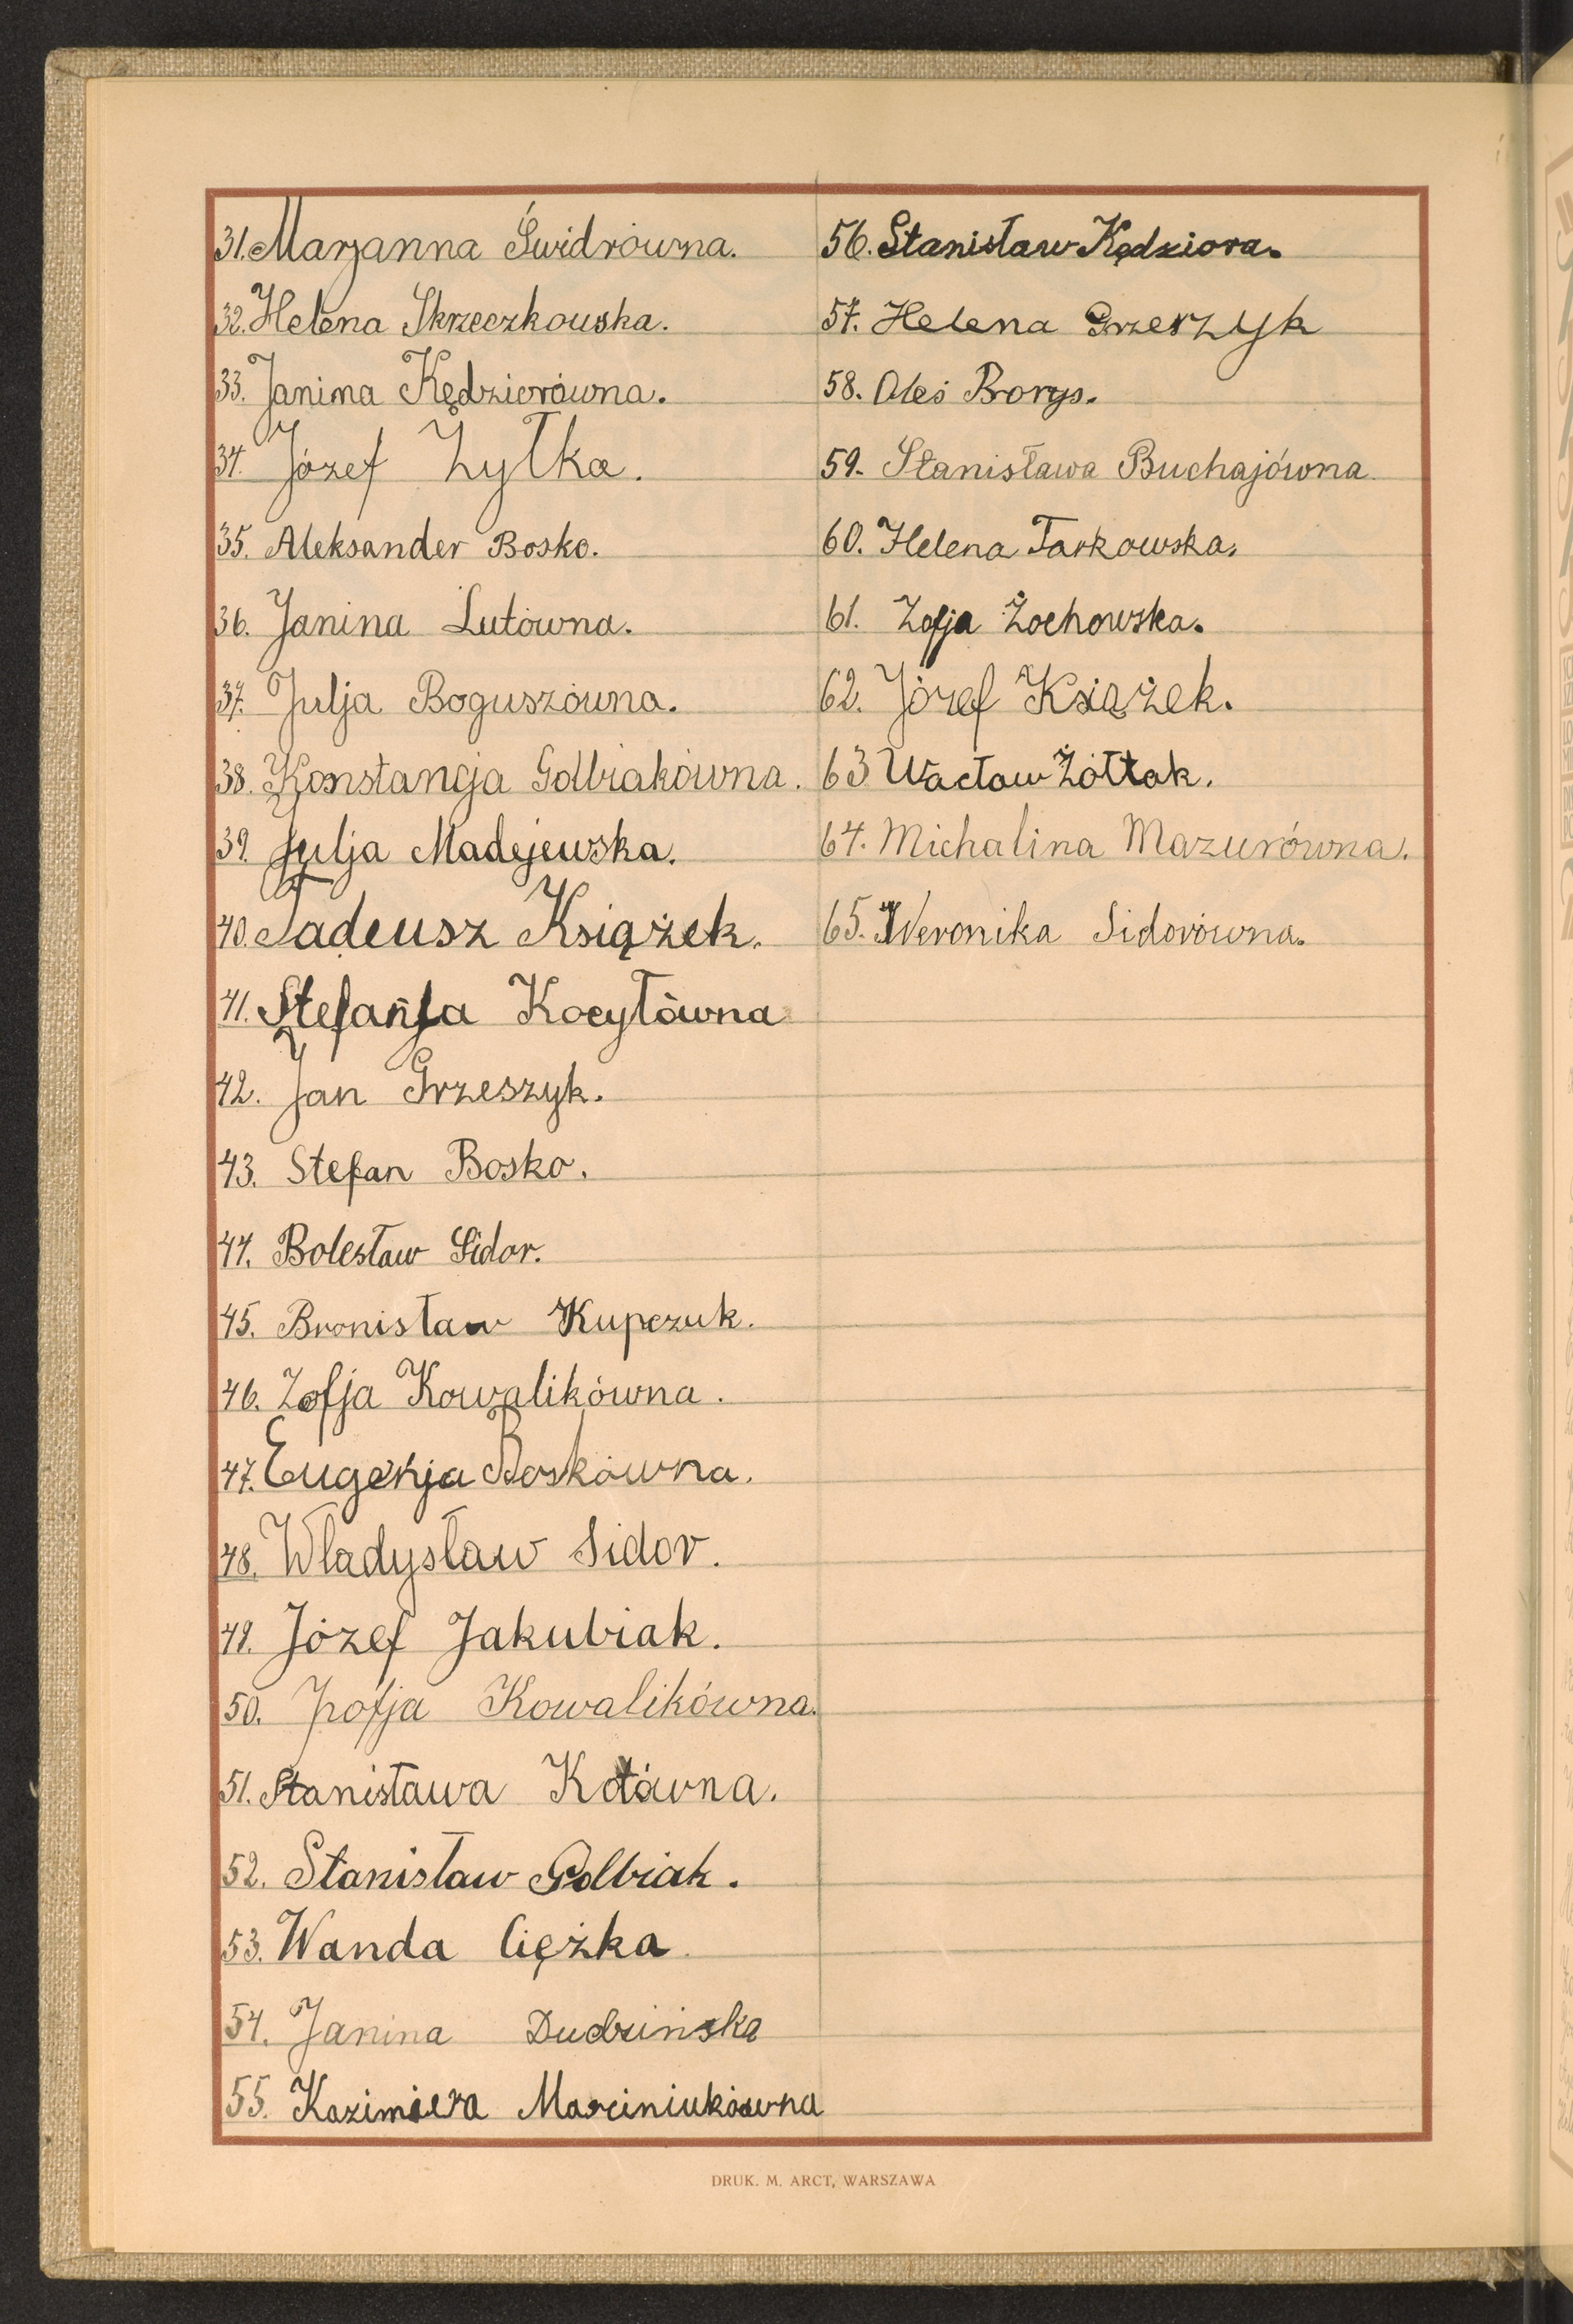 31. Marjanna Świdrówna.
32. Helena Skrzeczkowska.
33. Janina Kędziorówna.
34. Józef Żyłka.
35. Aleksander Bosko.
36. Janina Lutówna.
37. Julja Boguszówna.
38. Konstancja Golbiakówna.
39. Julja Madejewska.
40. Tadeusz Książek.
41. Stefanja Kocyłówna
42. Jan Grzeszyk.
43. Stefan Bosko.
44. Bolesław Sidor.
45. Bronisław Kupczuk.
46. Zofja Kowalikówna.
47. Eugenja Boskówna.
48. Władysław Sidor.
49. Józef Jakubiak.
50. Zofja Kowalikówna.
51. Stanisława Kotówna.
52. Stanisław Golbiak.
53. Wanda Ciężka
54. Janina Dudzińska
55. Kazimiera Marciniukówna
56. Stanisław Kędziora.
57. Helena Grzeszyk
58. Oleś Borys.
59. Stanisława Buchajówna
60. Helena Tarkowska.
61. Zofja Żochowska.
62. Józef Książek.
63 Wacław Żółtak.
64. Michalina Mazurówna.
65. Weronika Sidorówna.
DRUK. M. ARCT, WARSZAWA